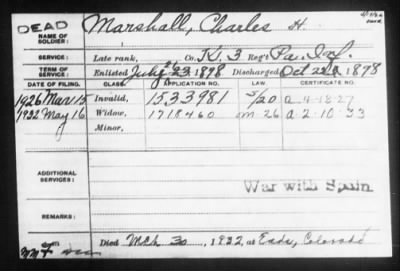 DEAD
NAME OF SOLDIER: Marshall, Charles H.
SERVICE: Late rank, Co. K, 3 Reg't Pa. Inf.
TERM OF SERVICE: Enlisted July 23 1898 Discharged Oct 22 1898
DATE OF FILING. CLASS. APPLICATION NO. LAW CERTIFICATE NO.
1926 Mar 15 Invalid, 1533981
1932 May 16 Widow, 1718460
Minor,
ADDITIONAL SERVICES:
War with Spain
REMARKS:
Died Mch 30, 1932, at Eads, Colorado